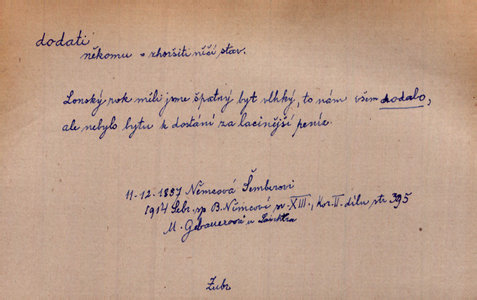 dodati
někomu = zhoršiti něčí stav.
Lonský rok měli jsme špatný byt vlhký, to nám všem dodalo,
ale nebylo bytu k dostání za lacinější peníz.
11-12.1857 Němcová Šemberovi
1914 Sebr. sp. B. Němcové sv. XIII., Kor. II. dílu str. 395
M. Gebauerová u Laichtra
Zubr